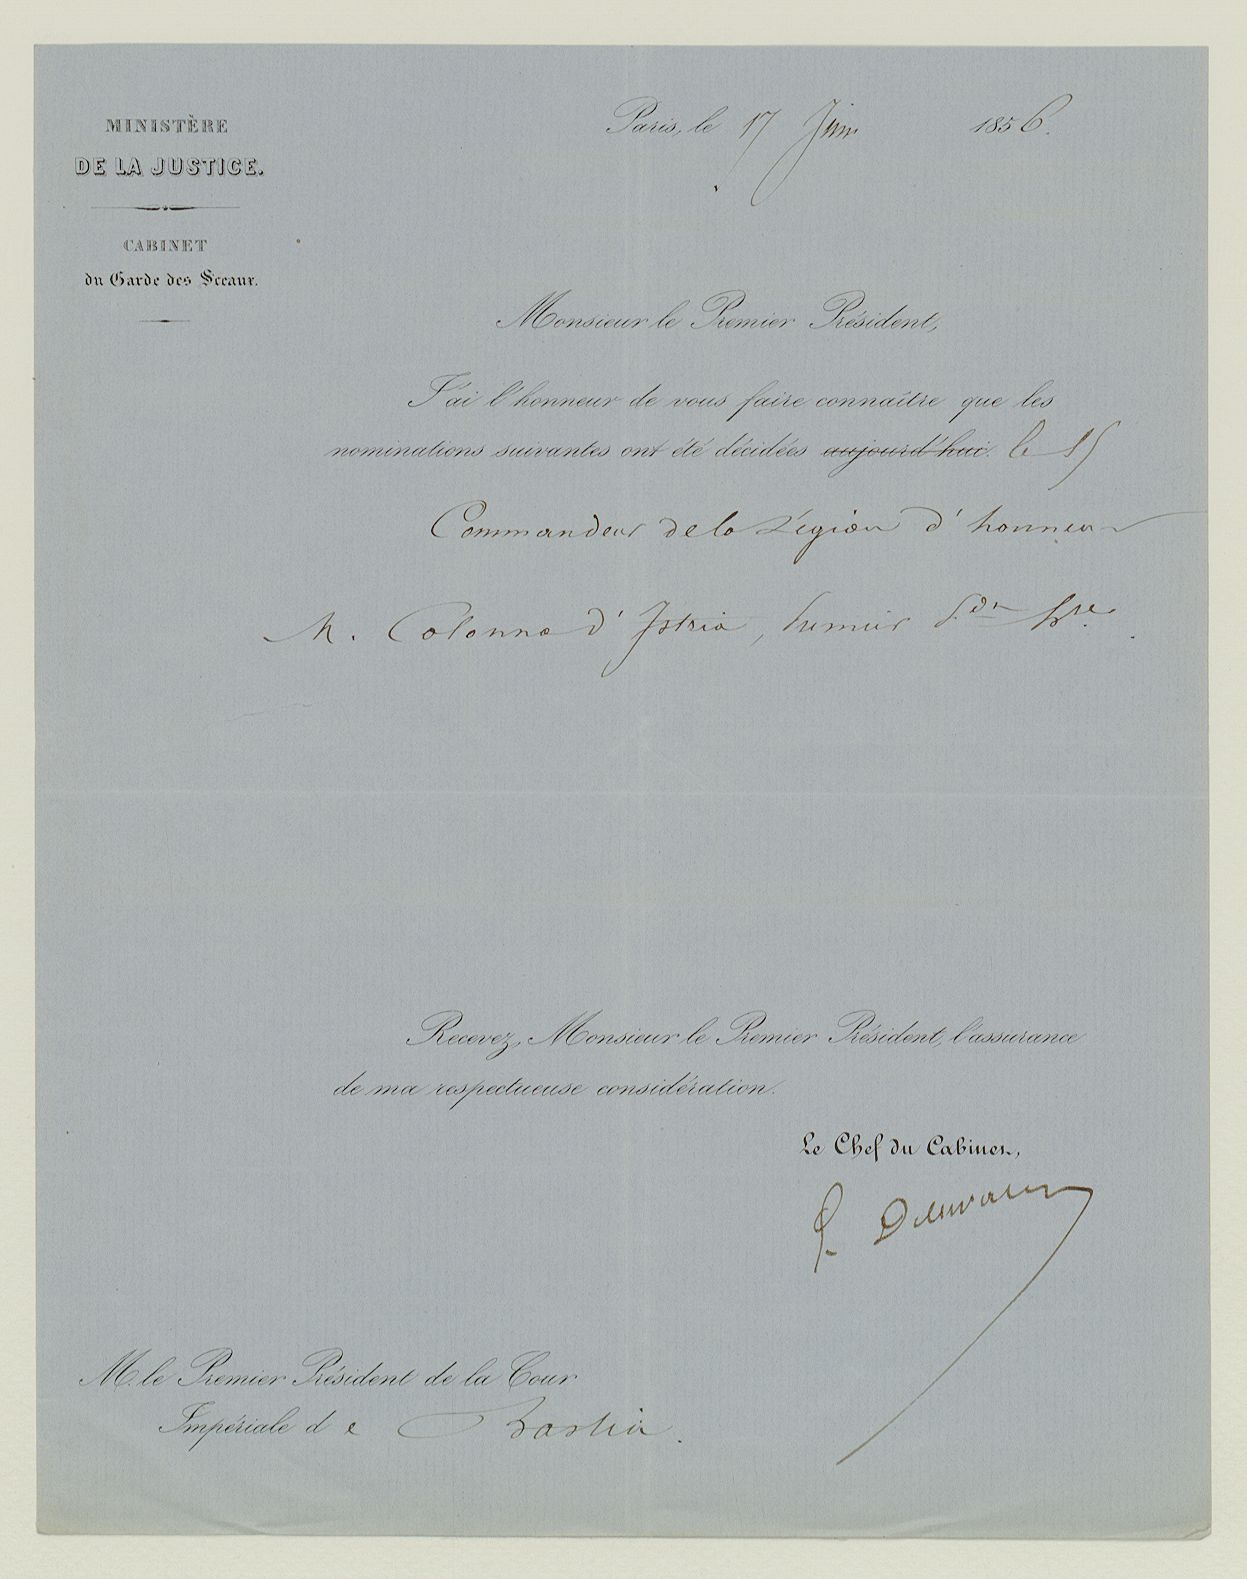 MINISTÈRE
DE LA JUSTICE.
CABINET
du Garde des Sceaux.
Paris, le 17 Juin 1856.
Monsieur le Premier Président,
J'ai l'honneur de vous faire connaître que les
nominations suivantes ont été décidées aujourd'hui. le 15
Commandeur de la Légion d'honneur
M. Colonna d'Istria, premier
Recevez, Monsieur le Premier Président, l'assurance
de ma respectueuse considération.
Le Chef du Cabinet,
M. le Premier Président de la Cour
Impériale de Bastia.